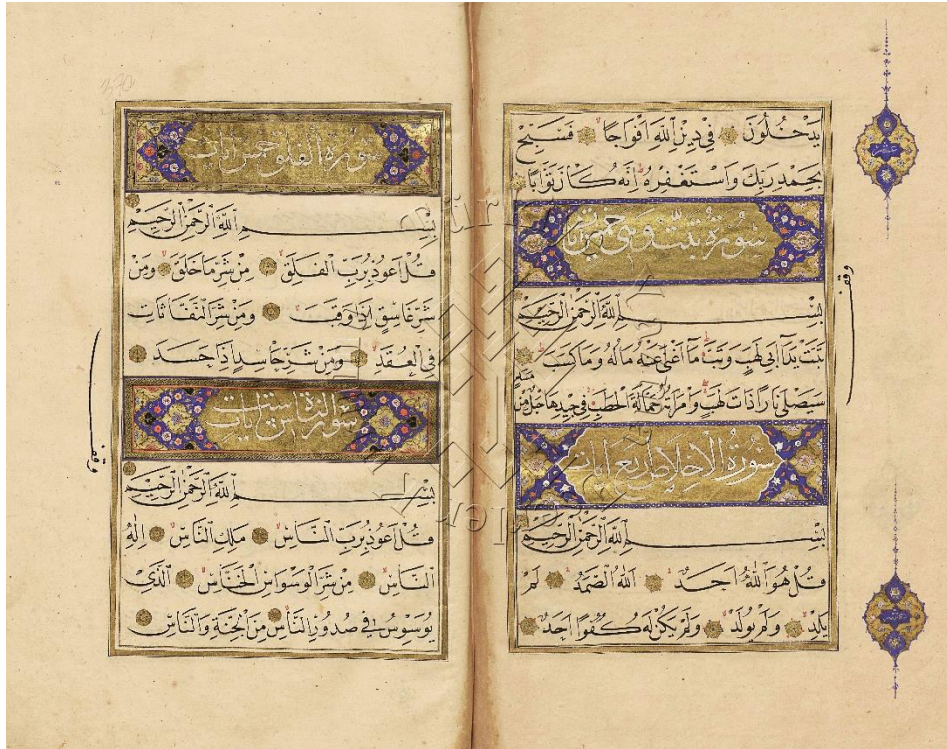 يَدْخُلُونَ فِي دِينِ اللّٰهِ اَفْوَاجًا فَسَبِّحْ
بِحَمْدِ رَبِّكَ وَاسْتَغْفِرْهُ اِنَّهُ كَانَ تَوَّابًا
سُورَةُ تَبَّتْ وَهِيَ خَمْسُ اٰيَاتٍ
بِسْمِ اللّٰهِ الرَّحْمٰنِ الرَّحِيمِ
تَبَّتْ يَدَا اَبِي لَهَبٍ وَتَبَّ مَا اَغْنٰى عَنْهُ مَالُهُ وَمَا كَسَبَ
سَيَصْلٰى نَارًا ذَاتَ لَهَبٍ وَامْرَاَتُهُ حَمَّالَةَ الْحَطَبِ فِي جِيدِهَا حَبْلٌ مِنْ
مسد
سُورَةُ الْاِخْلَاصِ اَرْبَعُ اٰيَاتٍ
بِسْمِ اللّٰهِ الرَّحْمٰنِ الرَّحِيمِ
قُلْ هُوَ اللّٰهُ اَحَدٌ اَللّٰهُ الصَّمَدُ لَمْ
يَلِدْ وَلَمْ يُولَدْ وَلَمْ يَكُنْ لَهُ كُفُوًا اَحَدٌ
وقف
سُورَةُ الْفَلَقِ خَمْسُ اٰيَاتٍ
بِسْمِ اللّٰهِ الرَّحْمٰنِ الرَّحِيمِ
قُلْ اَعُوذُ بِرَبِّ الْفَلَقِ مِنْ شَرِّ مَا خَلَقَ وَمِنْ
شَرِّ غَاسِقٍ اِذَا وَقَبَ وَمِنْ شَرِّ النَّفَّاثَاتِ
فِي الْعُقَدِ وَمِنْ شَرِّ حَاسِدٍ اِذَا حَسَدَ
سُورَةُ النَّاسِ سِتُّ اٰيَاتٍ
بِسْمِ اللّٰهِ الرَّحْمٰنِ الرَّحِيمِ
قُلْ اَعُوذُ بِرَبِّ النَّاسِ مَلِكِ النَّاسِ اِلٰهِ
النَّاسِ مِنْ شَرِّ الْوَسْوَاسِ الْخَنَّاسِ اَلَّذِي
يُوَسْوِسُ فِي صُدُورِ النَّاسِ مِنَ الْجِنَّةِ وَالنَّاسِ
وقف